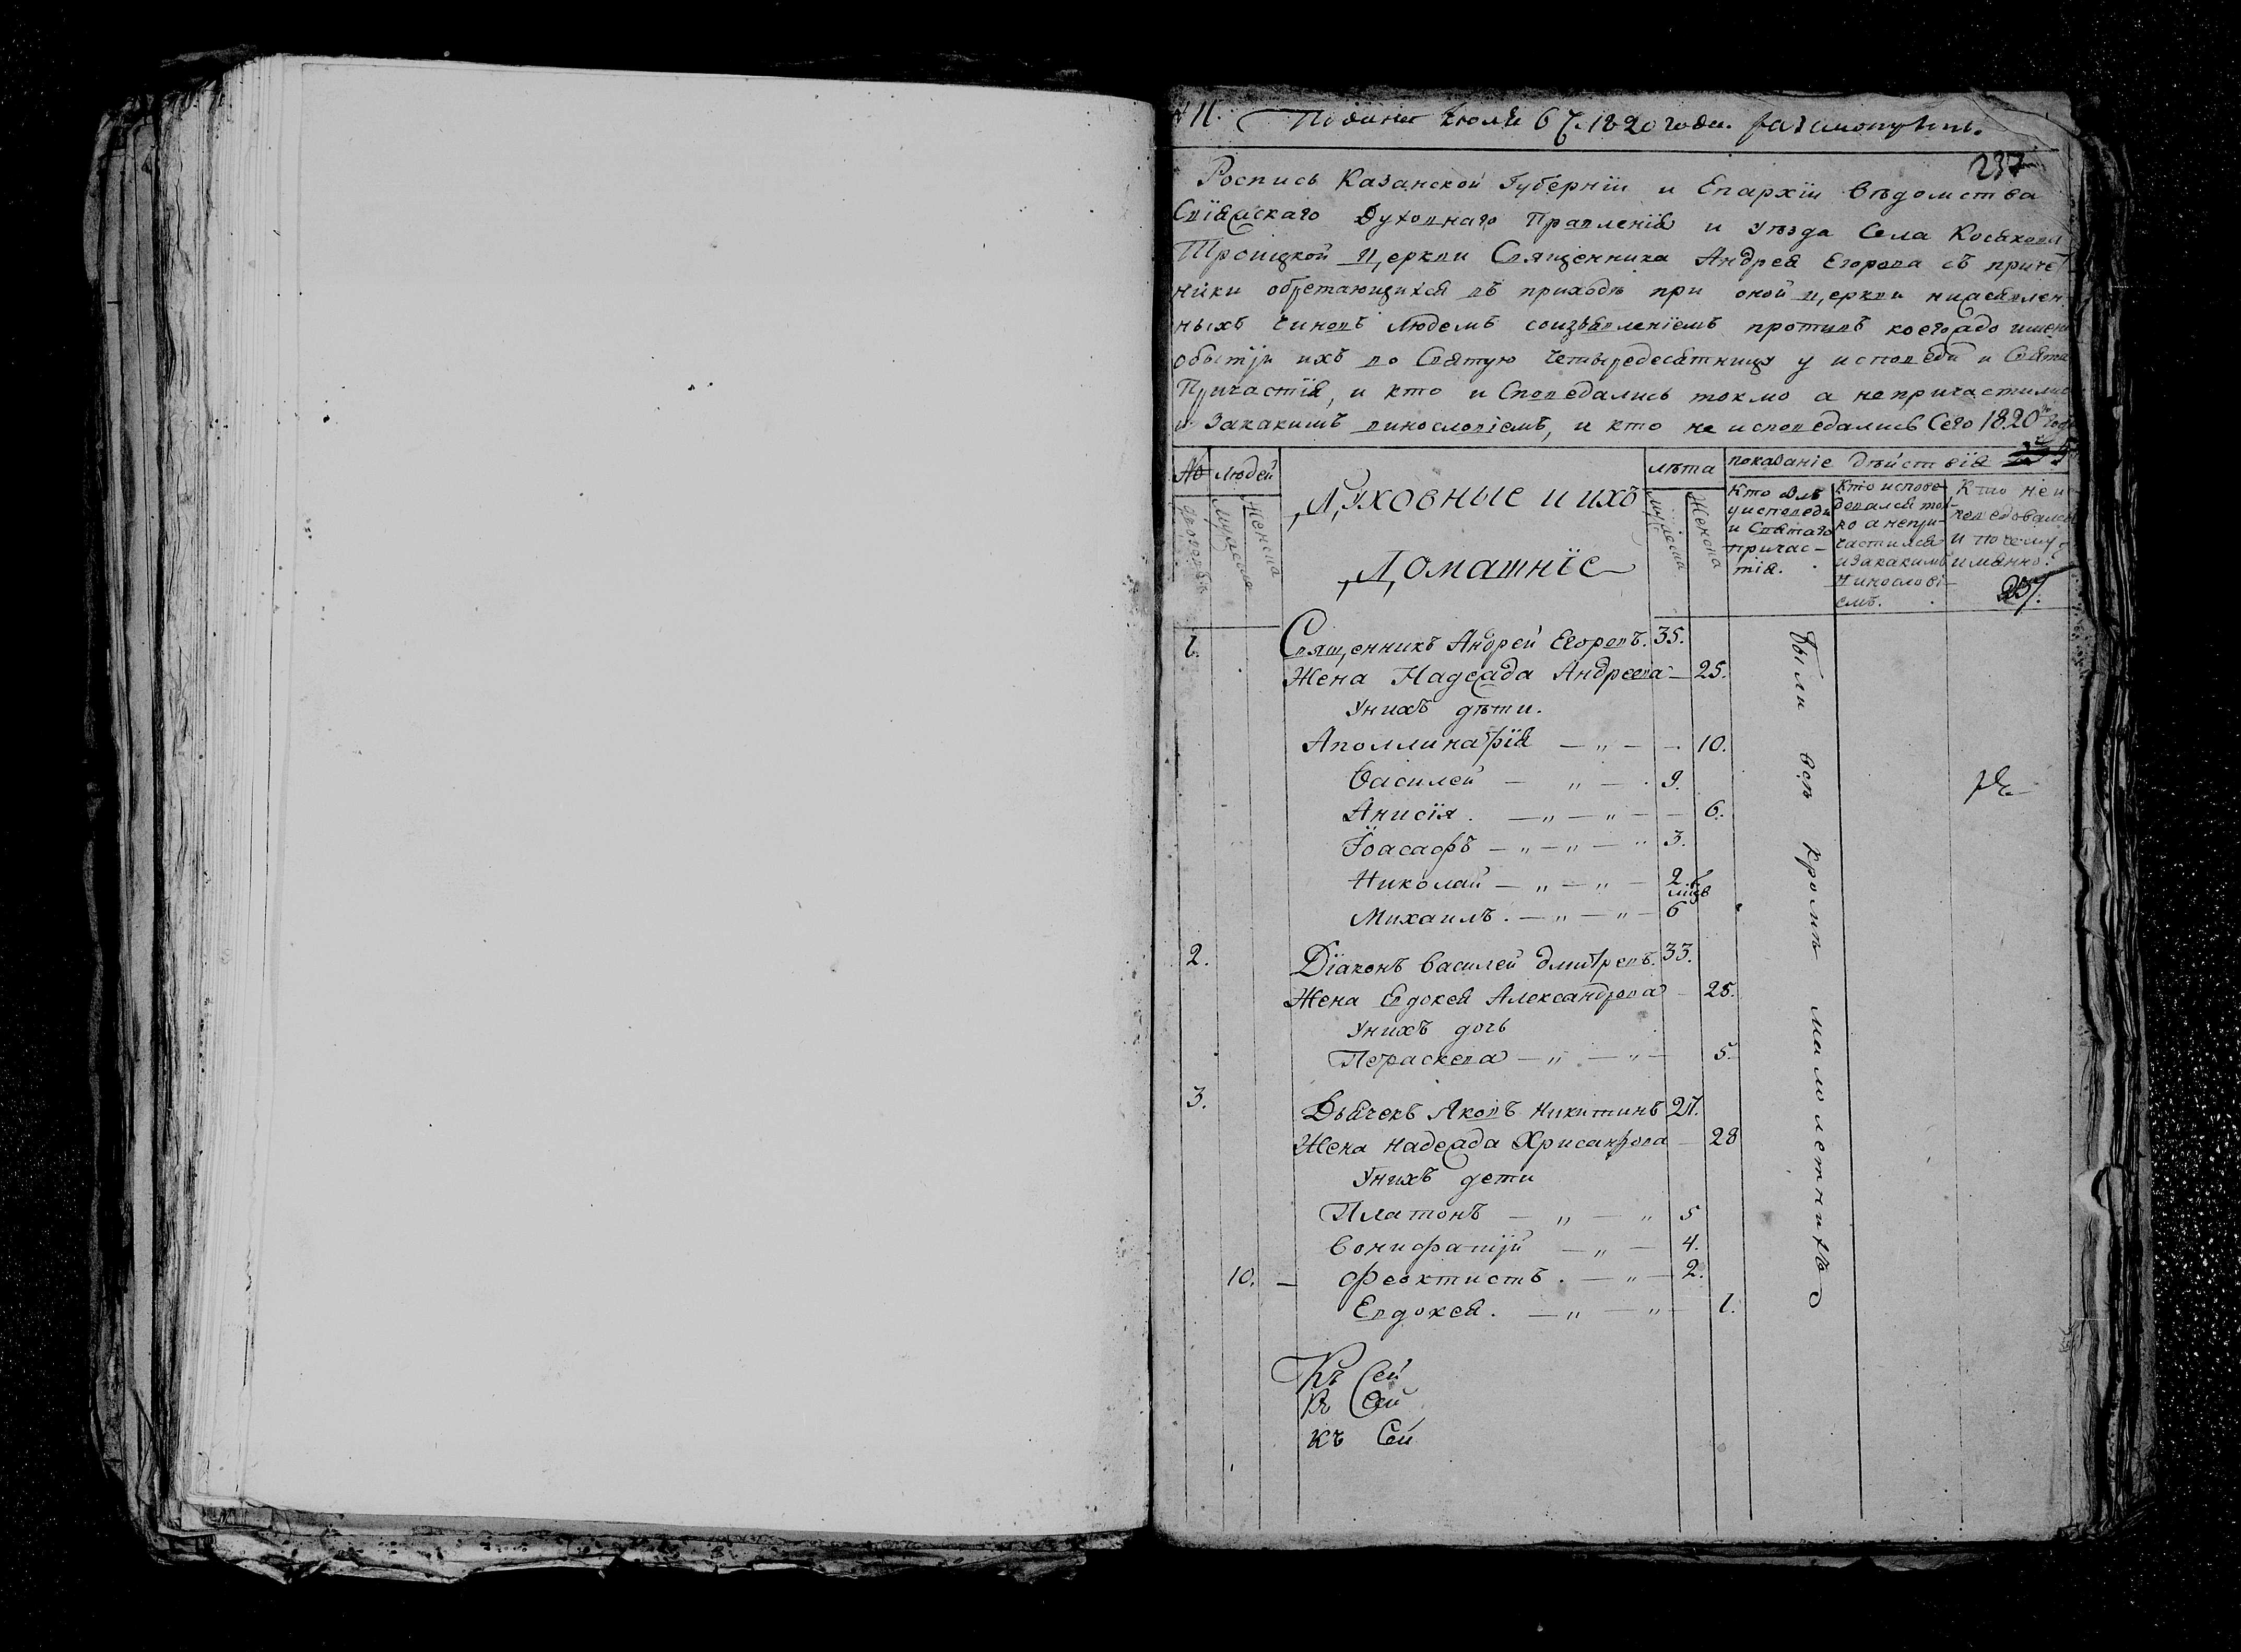 № 11. Подана Июля 6 г. 1820 года.
237
Роспись Казанской Губерніи и Епархіи Вѣдомства
Свіяжскаго Духовнаго Правленія и Уѣзда Села Косякова
Троицкой Церкви Священника Андрея Егорова съ приче
ники обретающихся въ приходѣ при оной церкви нижеявлен
ныхъ чиновъ людемъ соизъявленіемъ противъ коегождо имени
обытіи ихъ во Святую Четыредесятницу у исповеди и Святаго
Причастія, и кто исповедались токмо а непричастились
и Закакимъ винословіемъ, и кто не исповедались Сего 1820го года
№ Людей Духовные и ихъ лѣта показаніе дѣйствія
Дворовъ Мужеска Женска Домашніе Мужеска Женска
Кто былъ
у исповеди
и Святаго
причас-
тія.
Кто испове
довался ток
мо а непри-
частился
и Закакимъ
Винослові-
емъ.
Кто неис
поведовался
и почему
имянно.
237.
1. Священникъ Андрей Егоровъ. 35.
Жена Надежда Андреева — 25.
Унихъ дѣти.
Аполлинарія — „ — - 10.
Василей — „ — . 9.
Анисія . — „ — „ — — 6.
Іоасафъ — „ — „ — „ 3.
Николай — „ — „ — 2.
мцв
Михаилъ. — „ — „ — 6
2. Діаконъ Василей Дмитревъ. 33.
Жена Евдокея Александрова — 25.
Унихъ дочь
Параскева — „ — „ — 5.
3. Дьячекъ Яковъ Никитинъ 27.
Жена Надежда Хрисанфова — 28
Унихъ дети
Платонъ — „ — „ 5
Вонифатій — „ — 4.
10. — Феоктистъ . — „ — 2.
Евдокея. — „ — „ — 1.
Были всѣ кромѣ малолетнихъ
Къ Сей
Къ Сей
Къ Сей